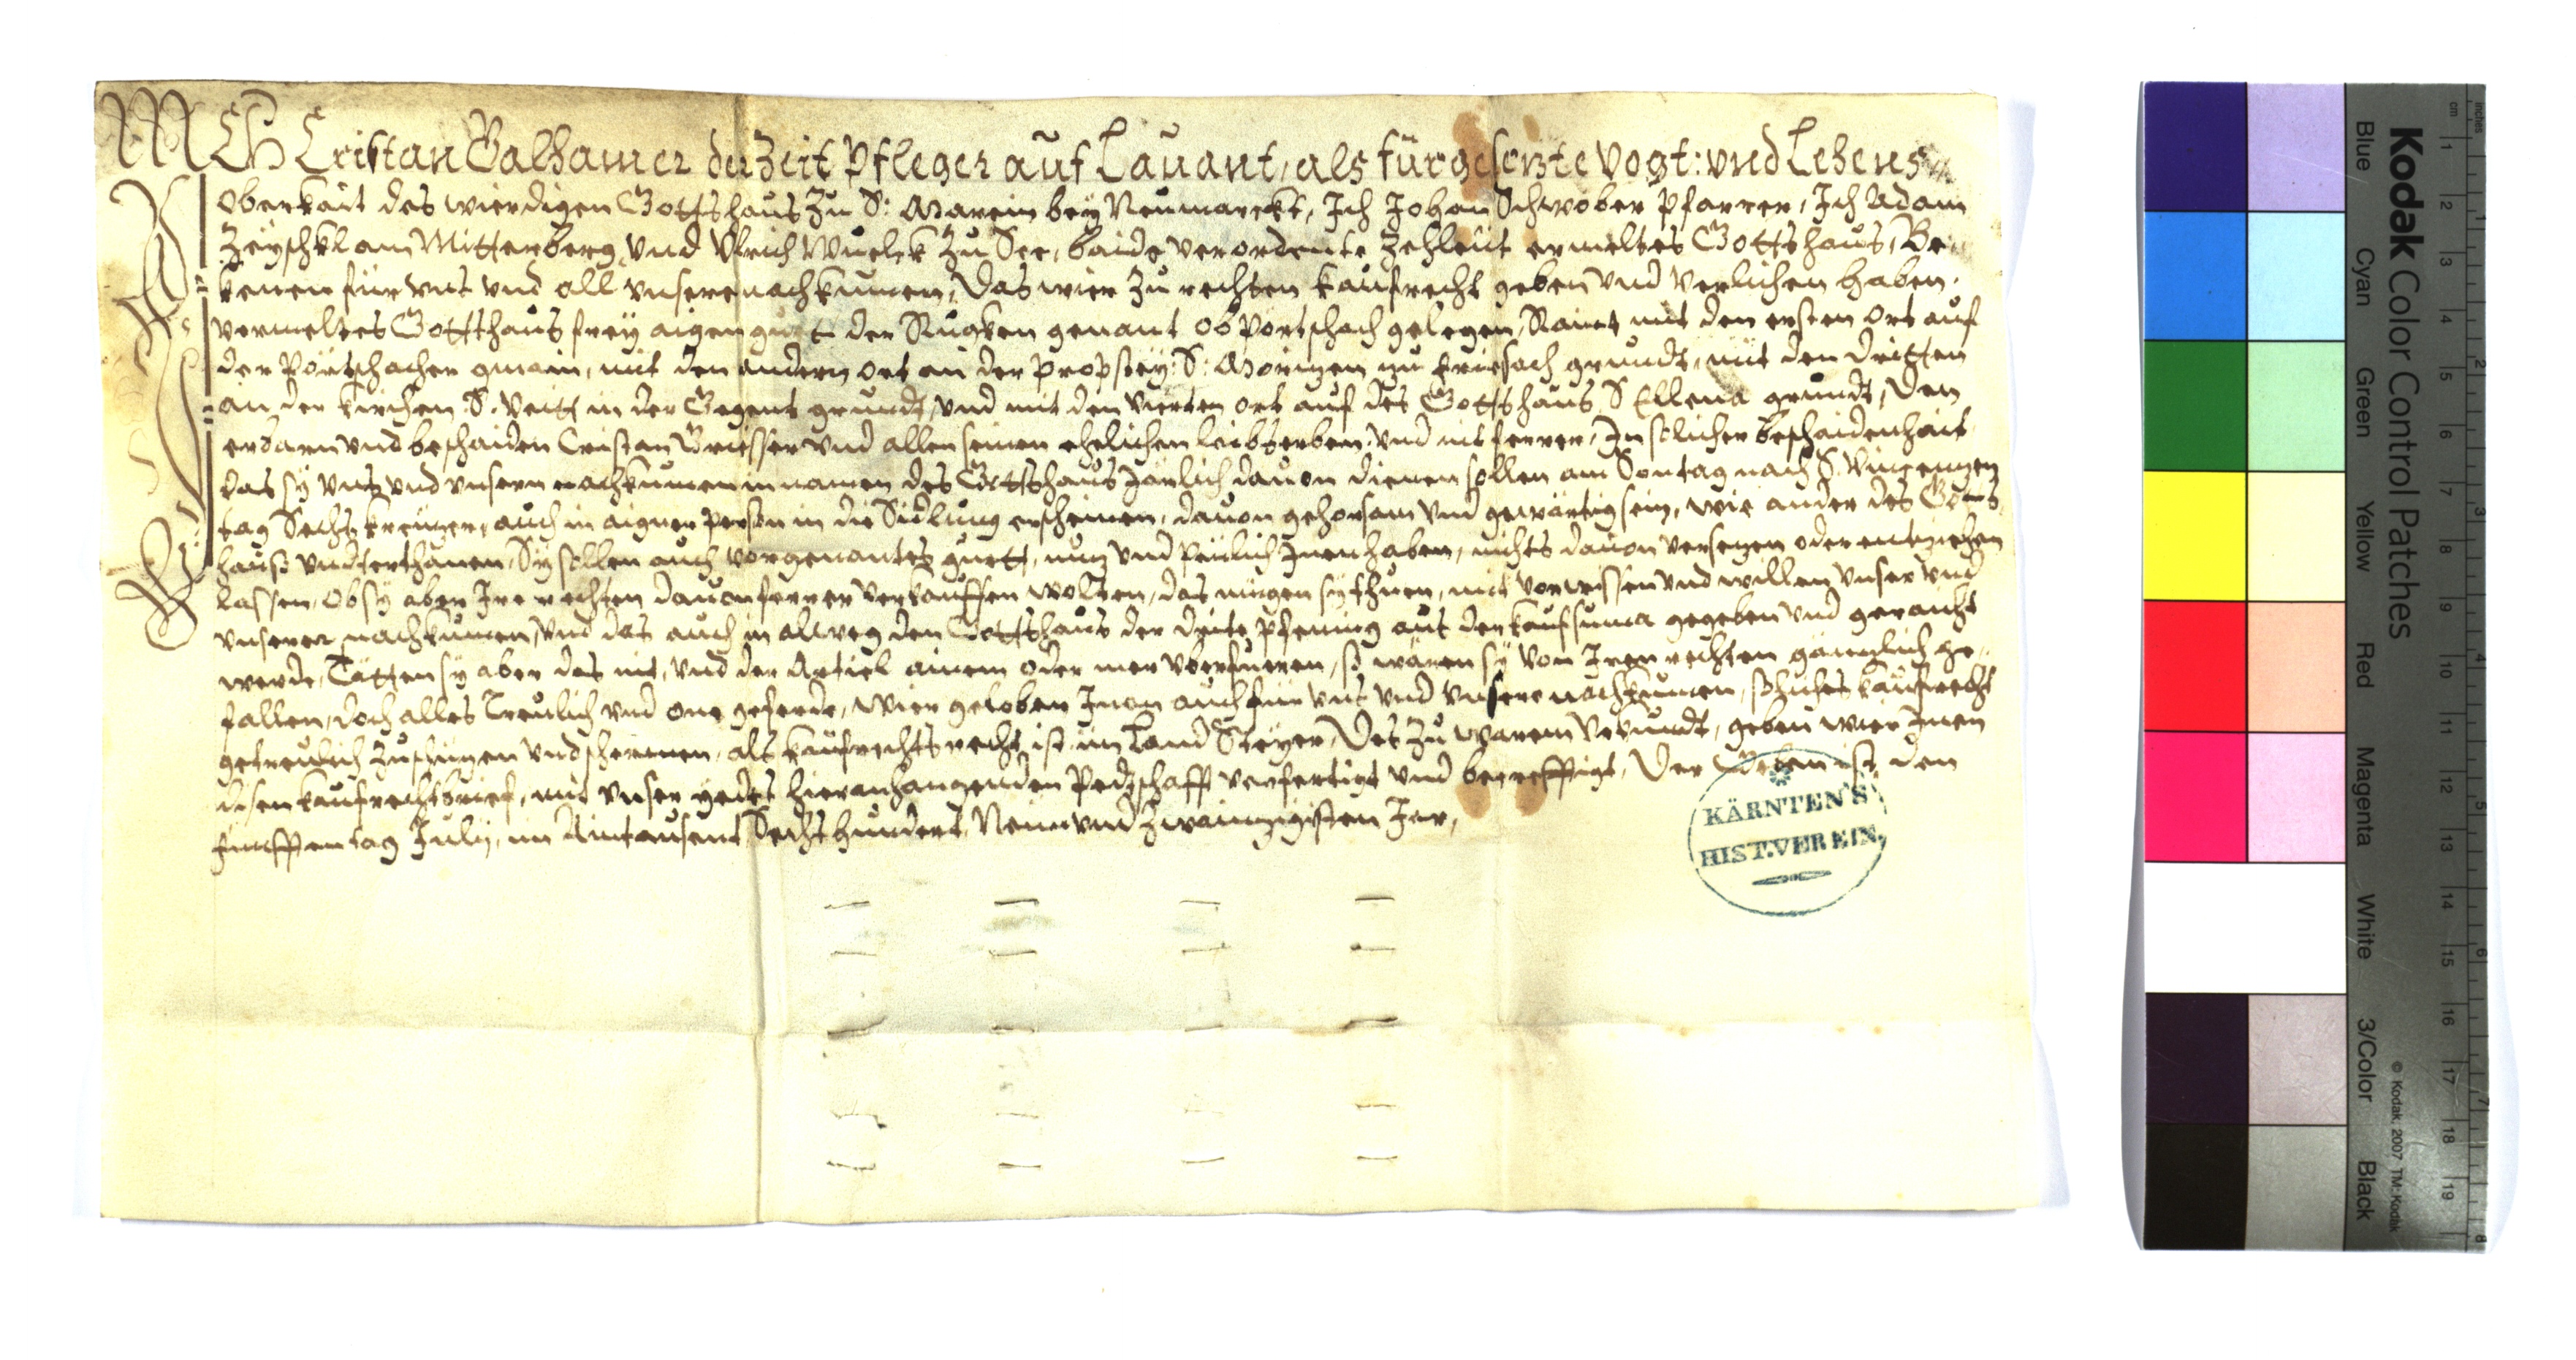 ICH Cristan Galhamer der Zeit Pfleger auf Lauant, als fürgesetzte Vogt: vnd Lehens
Oberkait des wierdigen Gottshaus Zu S: Marein bey Neumarckt, Ich Johan Schwober Pfarrer, Ich Adam
am Mitterberg, vnd Vlrich Zu See, baide verordente Zechleüt ermeltes Gottshaus, Be
kenen für vns vnd all vnsere nachkumen, Das wier Zu rechten kaufrecht geben vnd verlichen haben.
vermeltes Gottshaus frey aigen guet der Rugken genant ob Portschach gelegen, Raint mit den ersten Ort auf
der Portschacher gmain, mit den andern ort an der Propstey: S: Morizen zu Friesach grundt, mit den dritten
an der kirchen S. Veitt in der Gegent grundt, vnd mit den vierten ort auf des Gottshaus S Ellena grundt, Den
erbarn vnd beschaiden Cristan vnd allen seinen ehelichen leibserben, vnd nit ferrer, In solicher beschaidenhait
das sy vns vnd vnsern nachkumen in namen des Gottshaus Järlich dauon dienen sollen am Sontag nach S.
tag Sechs kreuzer, auch in aigner person in die Sidlung erscheinen, dauon gehorsam vnd gewärtig sein, wie ander des Gotts
hauß vndterthanen, Sy sollen auch vorgenantes guett, nuz vnd Innen haben, nichts dauon versezen oder entziehen
lassen, Ob sy aber Ire rechten dauon ferrer verkauffen wolten, das mügen sy thuen, mit vorwissen vnd willen vnser vnd
vnserer nachkumen, vnd das auch in alweg den Gottshaus der drite pfening aus der kaufsuma gegeben vnd geraicht
werde, Täten sy aber das nit, vnd der Articl ainem oder mer vberfueren, so wären sy von Iren rechten gänzlich ge
fallen, doch alles treulich vnd one geferde, Wier geloben Inen auch für vns vnd vnsere nachkumen, kaufrecht
getreulich Zu schüzen vnd schermen, als kaufrechts recht ist im Land Steyer, Des Zu warem Vrkundt, geben wier Inen
disen kaufrechtsbrief, mit vnser yedes hieranhangenden Pedtschafft verfertigt vnd becrefftigt, Der Geben ist den
funfften tag July, im Aintausent Sechshundert Neun vnd Zwainzigisten Jar,
KÄRNTEN'S
HIST. VEREIN.
Kodak Color Control Patches
Blue Cyan Green Yellow Red Magenta White 3/Color Black
inches 1 2 3 4 5 6 7 8
cm 1 2 3 4 5 6 7 8 9 10 11 12 13 14 15 16 17 18 19
© Kodak, 2007 TM: Kodak